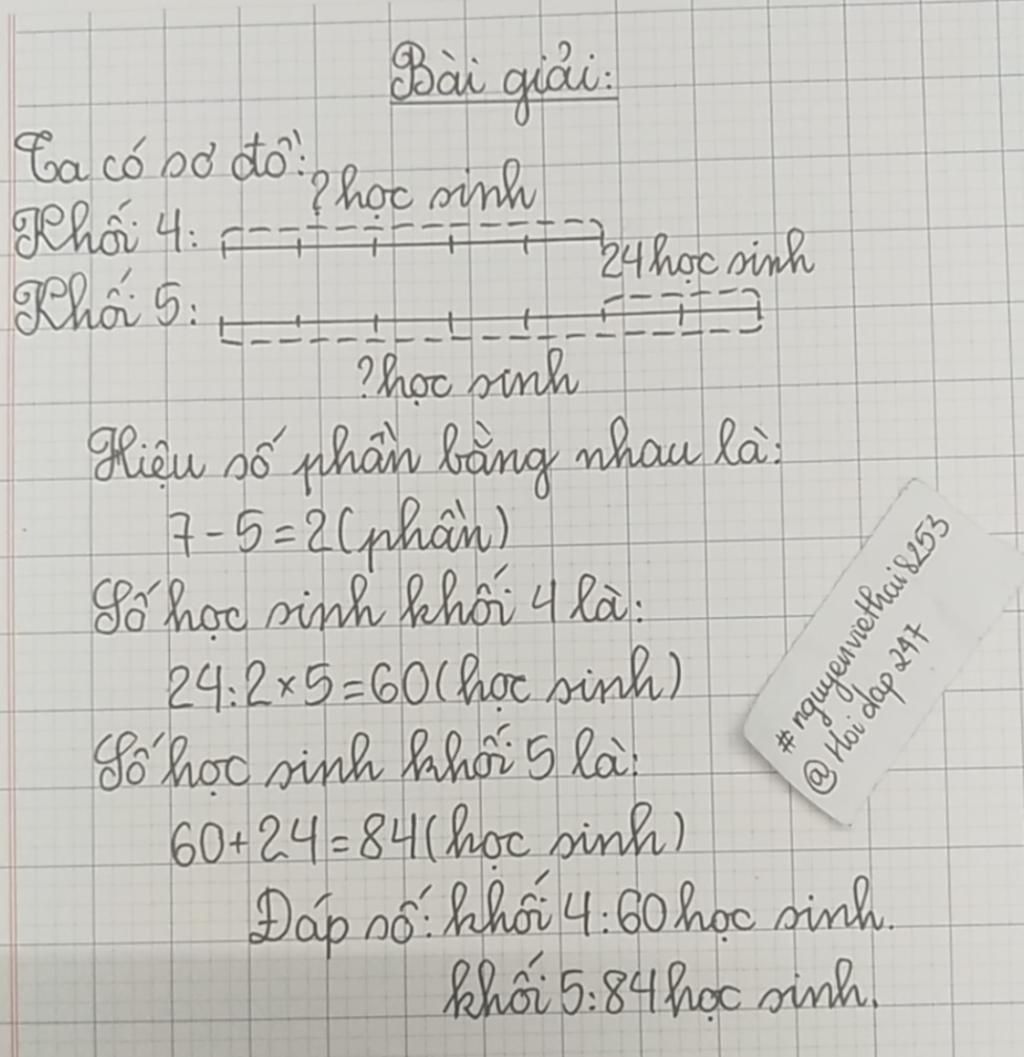 Bài giải:
Ta có sơ đồ:
? học sinh
Khối 4:
24 học sinh
Khối 5:
? học sinh
Hiệu số phần bằng nhau là:
7 - 5 = 2 (phần)
Số học sinh khối 4 là:
24 : 2 × 5 = 60 (học sinh)
Số học sinh khối 5 là:
60 + 24 = 84 (học sinh)
Đáp số: khối 4: 60 học sinh.
khối 5: 84 học sinh.
#nguyenviethai8253
@Hoi dap 247